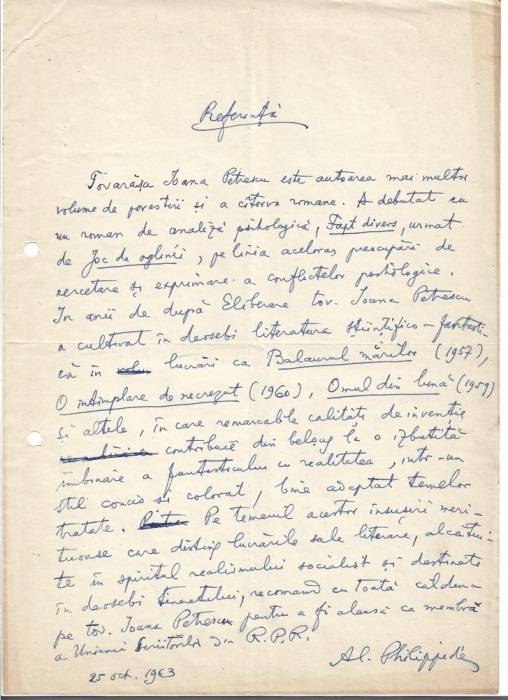 Referință
Tovarășa Ioana Petrescu este autoarea mai multor
volume de povestiri și a cîtorva romane. A debutat cu
un roman de analiză psihologică, Fapt divers, urmat
de Joc de oglinzi, pe linia acelorași preocupări de
cercetare și exprimare a conflictelor psihologice.
In anii de după Eliberare tov. Ioana Petrescu
a cultivat în deosebi literatura științifico-fantasti-
că în lucrări ca Balaurul mărilor (1957),
O întîmplare de necrezut (1960), Omul din lună (1959)
și altele, în care remarcabile calități de invenție
contribuie din belșug la o izbutită
îmbinare a fantasticului cu realitatea, intr-un
stil concis și colorat, bine adaptat temelor
tratate. Pe temeiul acestor însușiri meri-
tuoase care disting lucrările sale literare, alcătui-
te în spiritul realismului socialist și destinate
în deosebi tineretului, recomand cu toată căldura
pe tov. Ioana Petrescu pentru a fi aleasă ca membră
a Uniunii Scriitorilor din R.P.R.
Al. Philippide
25 oct. 1963